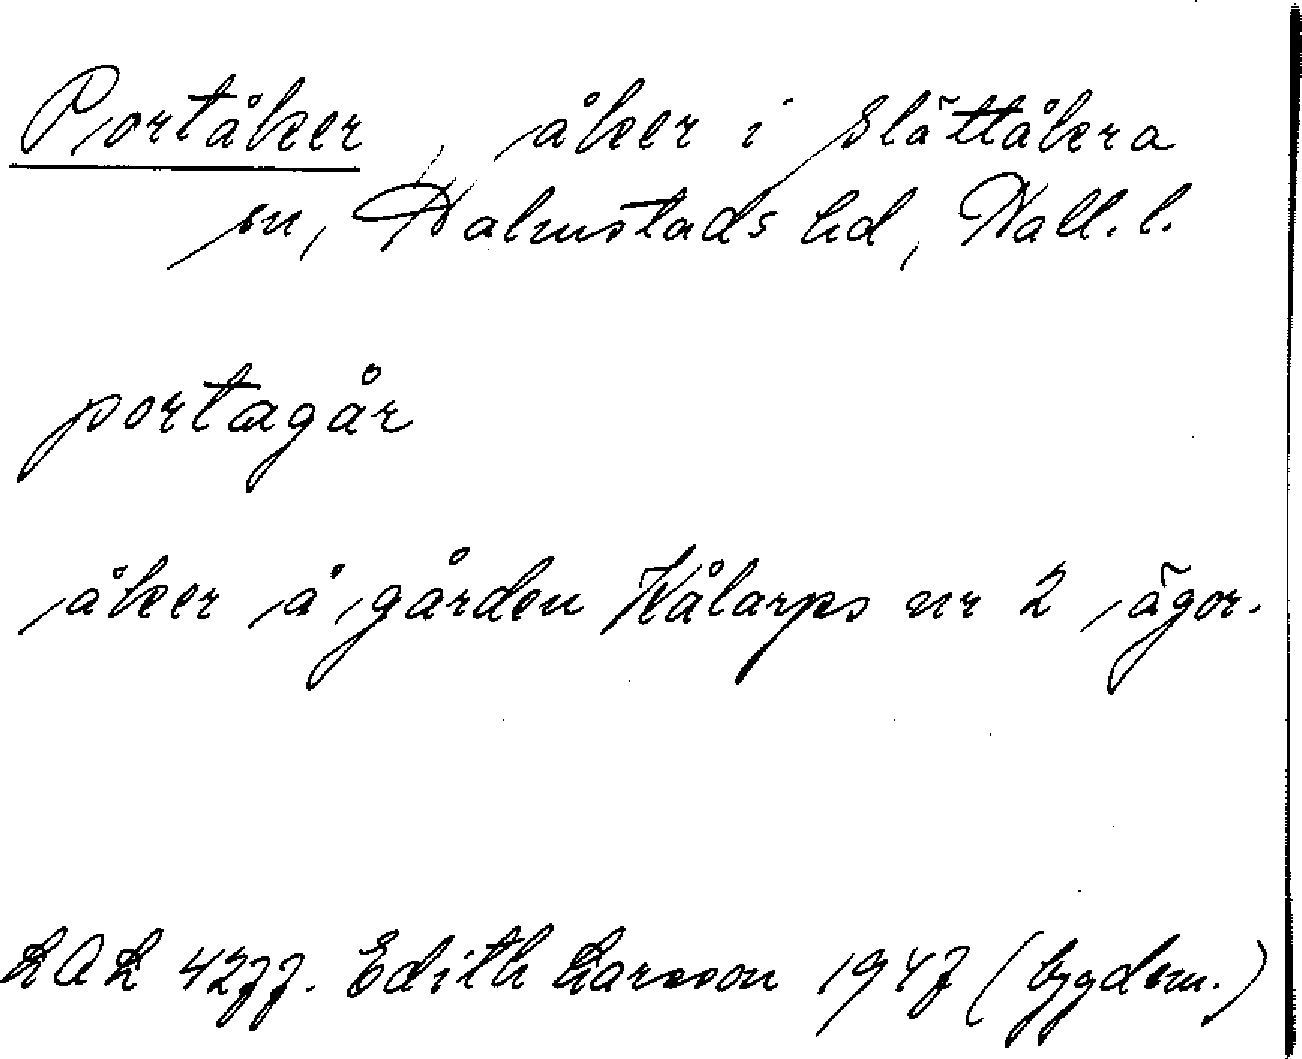 Portåker, åker i Slättåkra
sn, Halmstads hd, Hall. l.
portagår
åker å gården Kålarps nr 2 ägor.
LAL 4277. Edith Larsson 1947 (bygdem.)